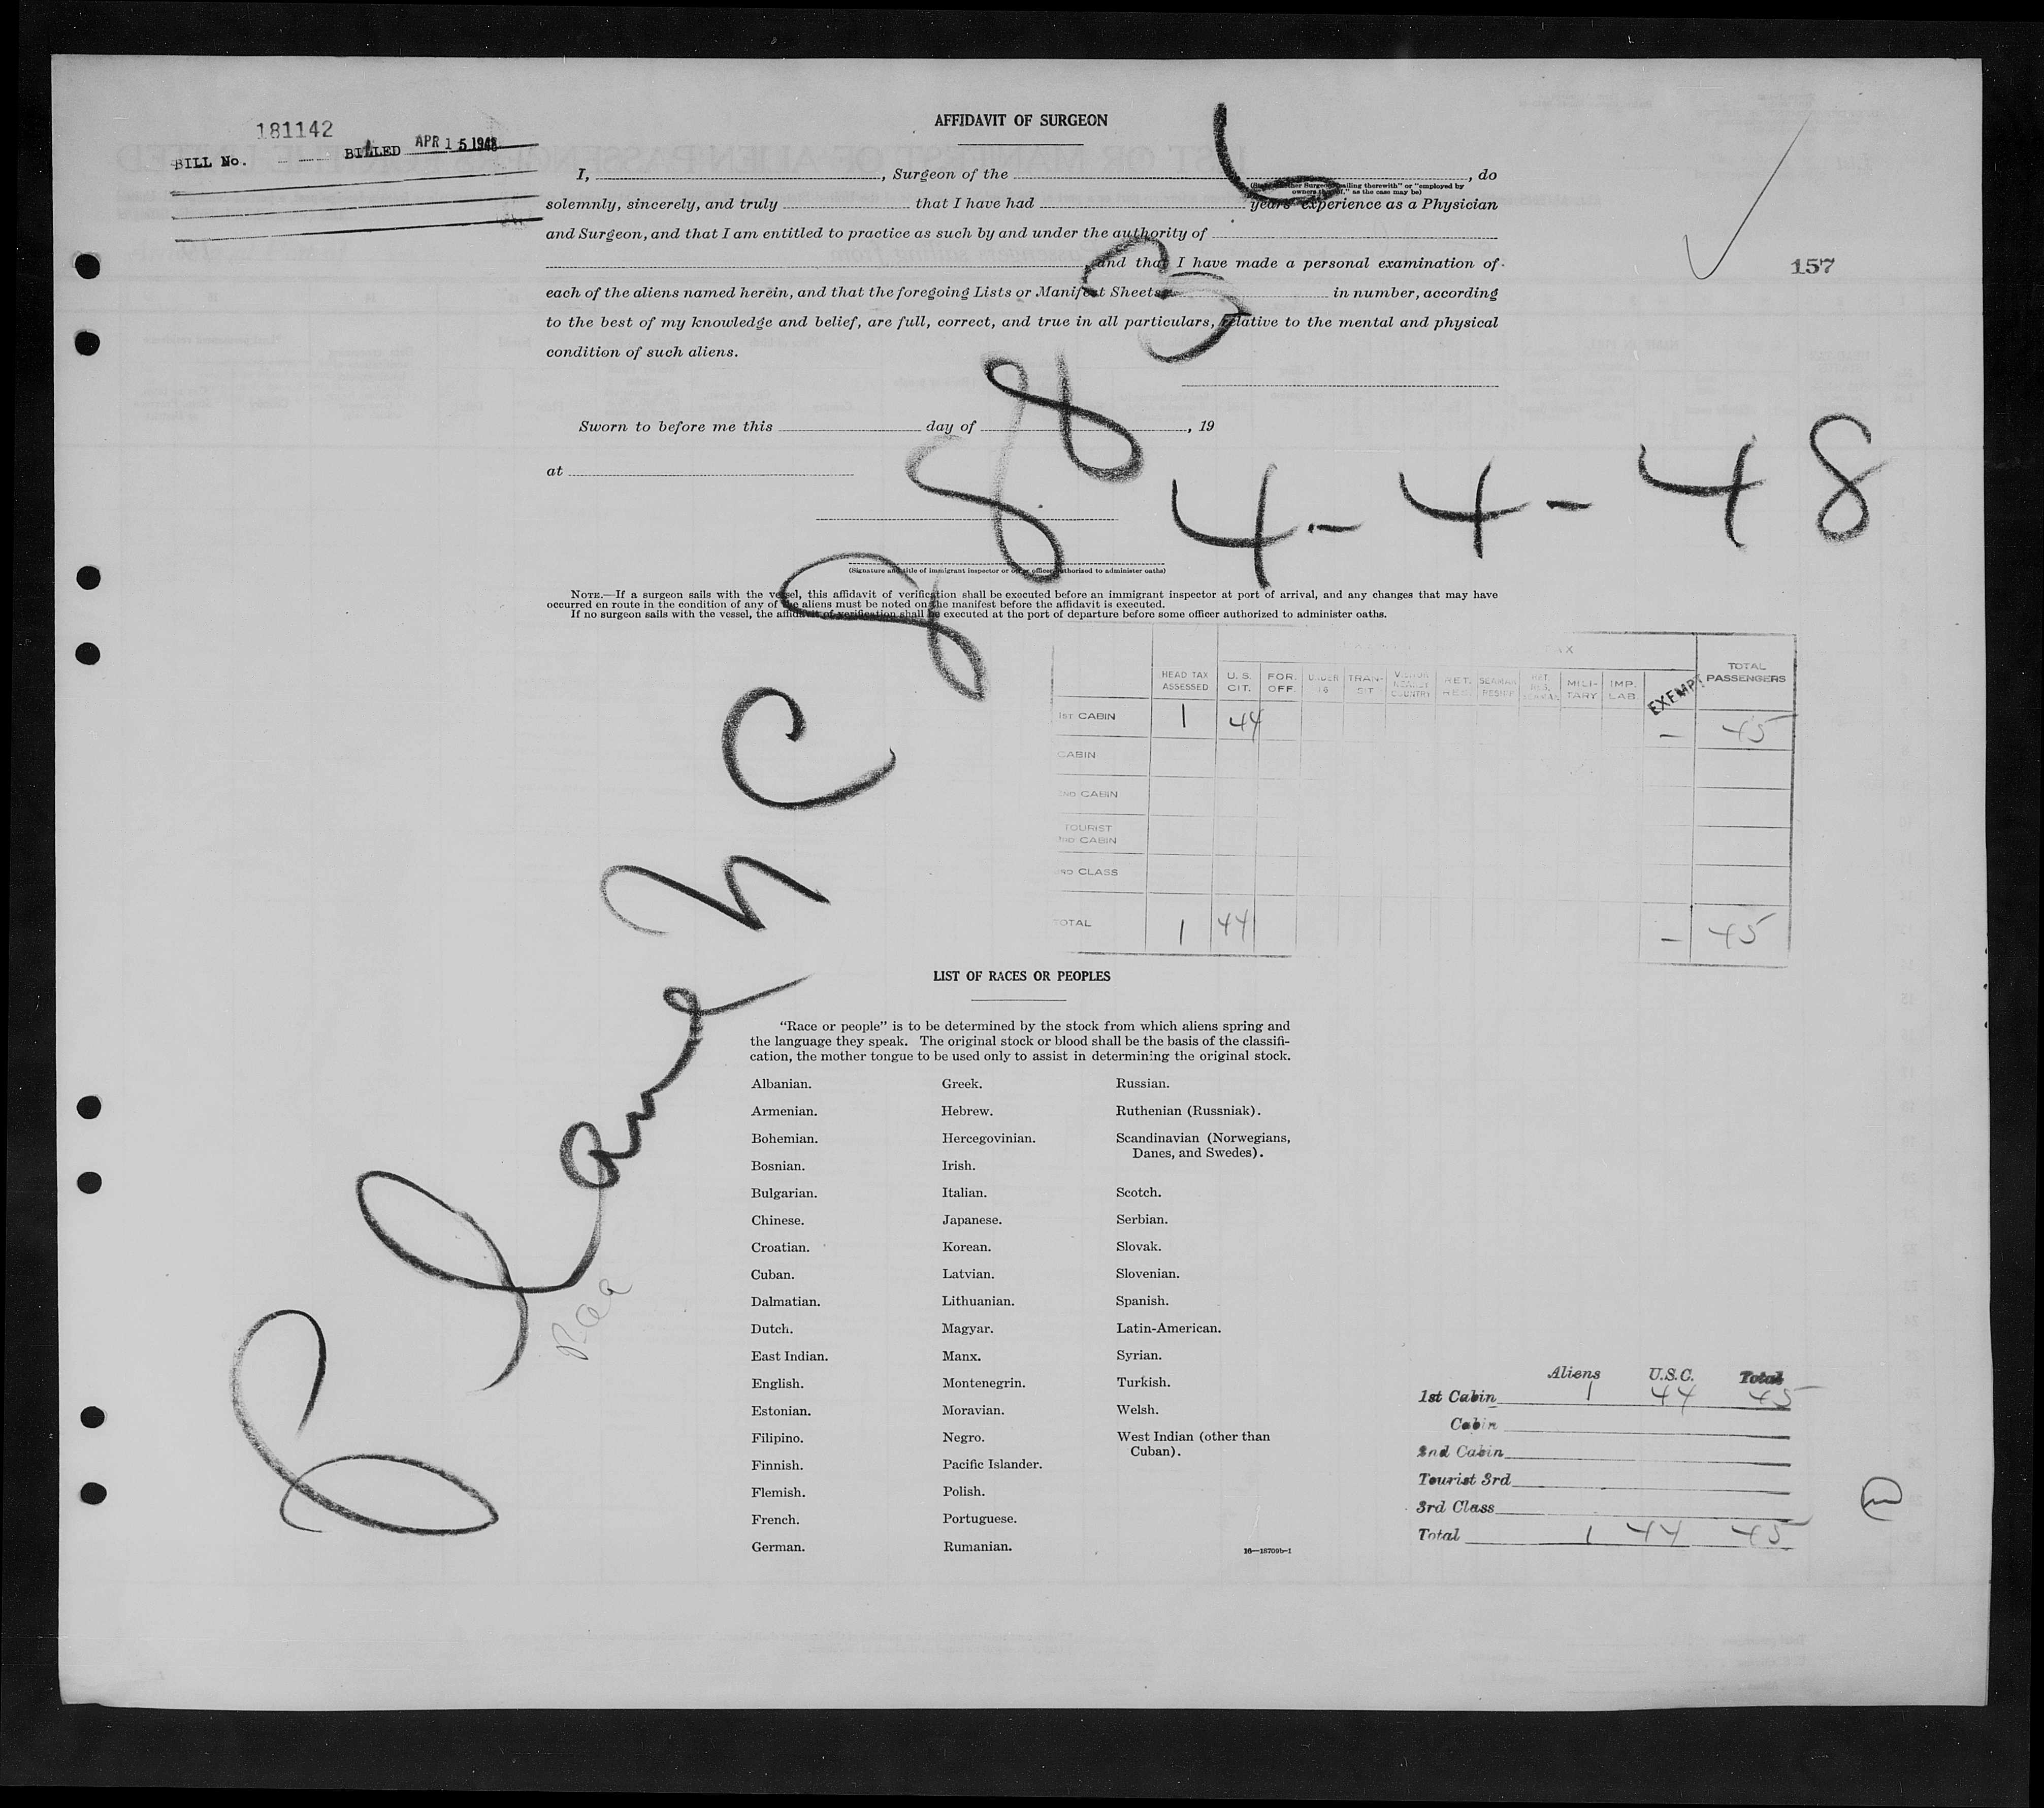 181142
BILL No. BILLED APR 15 1948
AFFIDAVIT OF SURGEON
I, , Surgeon of the , do
(State whether Surgeon sailing therewith" or "employed by
owners thereof," as the case may be)
solemnly, sincerely, and truly that I have had years' experience as a Physician
and Surgeon, and that I am entitled to practice as such by and under the authority of
, and that I have made a personal examination of
each of the aliens named herein, and that the foregoing Lists or Manifest Sheets, in number, according
to the best of my knowledge and belief, are full, correct, and true in all particulars, relative to the mental and physical
condition of such aliens.
157
Sworn to before me this day of , 19
at
Plane NC 88836
4-4-48
(Signature and title of immigrant inspector or other officer authorized to administer oaths)
NOTE.—If a surgeon sails with the vessel, this affidavit of verification shall be executed before an immigrant inspector at port of arrival, and any changes that may have
occurred en route in the condition of any of the aliens must be noted on the manifest before the affidavit is executed.
If no surgeon sails with the vessel, the affidavit of verification shall be executed at the port of departure before some officer authorized to administer oaths.
TAX
HEAD TAX ASSESSED U. S. CIT. FOR. OFF. UNDER 16 TRAN- SIT COUNTRY RET. RES. SEAMAN MILI- TARY IMP. LAB EXEMPT TOTAL PASSENGERS
1ST CABIN 1 44 — 45
CABIN
2ND CABIN
TOURIST
3RD CABIN
3RD CLASS
TOTAL 1 44 — 45
LIST OF RACES OR PEOPLES
"Race or people" is to be determined by the stock from which aliens spring and
the language they speak. The original stock or blood shall be the basis of the classifi-
cation, the mother tongue to be used only to assist in determining the original stock.
Albanian. Greek. Russian.
Armenian. Hebrew. Ruthenian (Russniak).
Bohemian. Hercegovinian. Scandinavian (Norwegians,
Danes, and Swedes).
Bosnian. Irish.
Bulgarian. Italian. Scotch.
Chinese. Japanese. Serbian.
Croatian. Korean. Slovak.
Cuban. Latvian. Slovenian.
Dalmatian. Lithuanian. Spanish.
Dutch. Magyar. Latin-American.
East Indian. Manx. Syrian.
English. Montenegrin. Turkish.
Estonian. Moravian. Welsh.
Filipino. Negro. West Indian (other than
Cuban).
Finnish. Pacific Islander.
Flemish. Polish.
French. Portuguese.
German. Rumanian.
16—18709b-1
Aliens U.S.C. Total
1st Cabin 1 44 45
Cabin
2nd Cabin
Tourist 3rd
3rd Class
Total 1 44 45